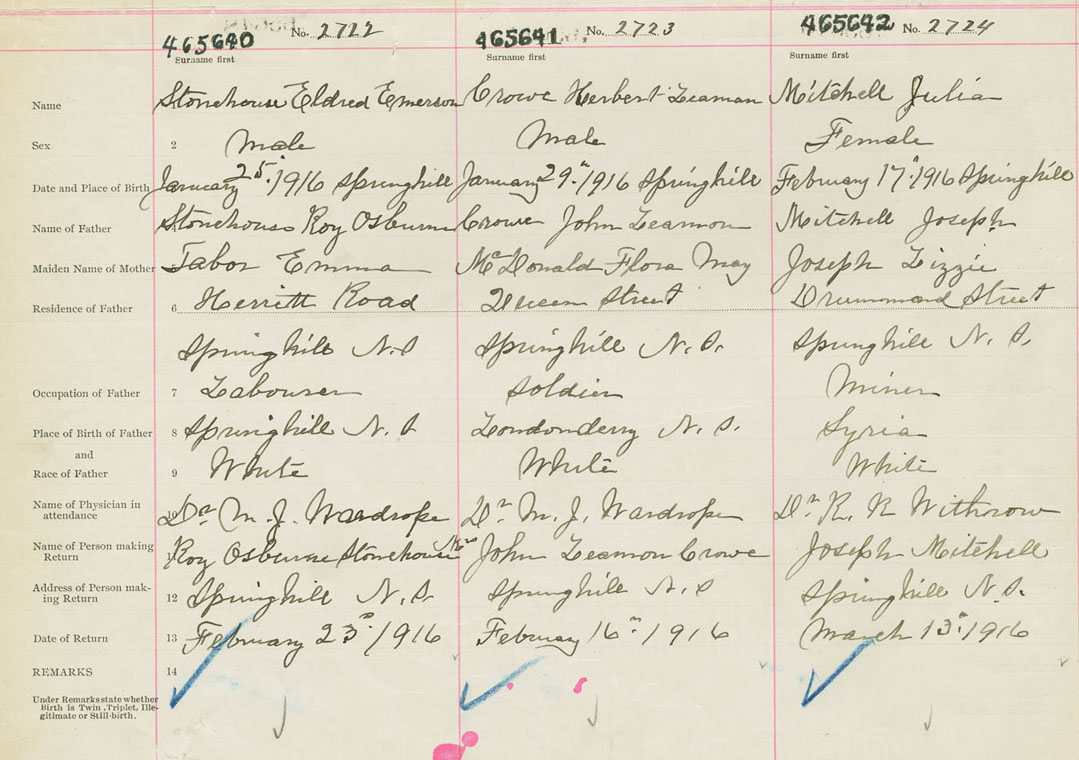 465640 No. 2722 465641 No. 2723 465642 No. 2724
Surname first Surname first Surname first
Name Stonehouse Eldred Emerson Crowe Herbert Leaman Mitchell Julia
Sex 2 Male Male Female
Date and Place of Birth January 25th 1916 Springhill January 29th 1916 Springhill February 17th 1916 Springhill
Name of Father Stonehouse Roy Osburne Crowe John Leamon Mitchell Joseph
Maiden Name of Mother Tabor Emma McDonald Flora May Joseph Lizzie
Residence of Father 6 Herritt Road Queen Street Drummond Street
Springhill N.S Springhill N.S. Springhill N.S.
Occupation of Father 7 Labourer Soldier Miner
Place of Birth of Father 8 Springhill N.S Londonderry N.S. Syria
and
Race of Father 9 White White White
Name of Physician in
attendance 10 Dr M.J. Wardrope Dr M.J. Wardrope Dr R.R Withrow
Name of Person making
Return Roy Osburne Stonehouse John Leamon Crowe Joseph Mitchell
Address of Person mak-
ing Return 12 Springhill N.S. Springhill N.S Springhill N.S.
Date of Return 13 February 23rd 1916 February 16th 1916 March 13th 1916
REMARKS 14
Under Remarks state whether
Birth is Twin, Triplet, Ille-
gitimate or Still-birth.